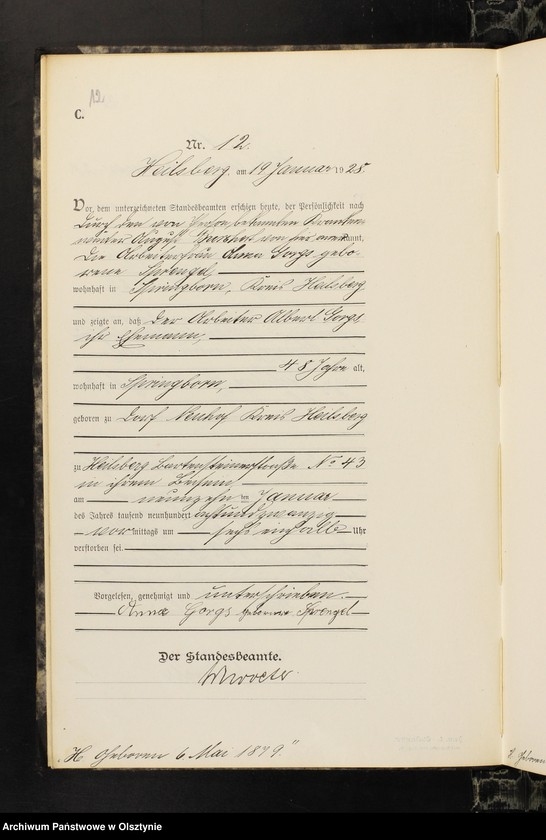 12.
C.
Nr. 12.
Heilsberg am 19 Januar 1928.
Vor dem unterzeichneten Standesbeamten erschien heute, der Persönlichkeit nach
durch den von Person bekannten Kranken
wärter August von hier anerkannt,
die Arbeiterfrau Anna Gorgs gebo-
rene Sprengel
wohnhaft in Springborn, Kreis Heilsberg
und zeigte an, daß der Arbeiter Albert Gorgs,
ihr Ehemann,
48 Jahre alt,
wohnhaft in Springborn,
geboren zu Dorf Neuhof Kreis Heilsberg
zu Heilsberg Bartensteinerstraße No 43
in ihrem Beisein
am neunzehn ten Januar
des Jahres tausend neunhundert achtundzwanzig
vor mittags um sechs einhalb Uhr
verstorben sei.
Vorgelesen, genehmigt und unterschrieben.
Anna Gorgs geborene Sprengel
Der Standesbeamte.
"H. Geboren 6. Mai 1879."
Archiwum Państwowe w Olsztynie